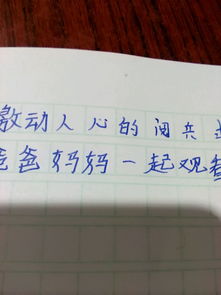 激动人心的阅兵
爸爸妈妈一起观看